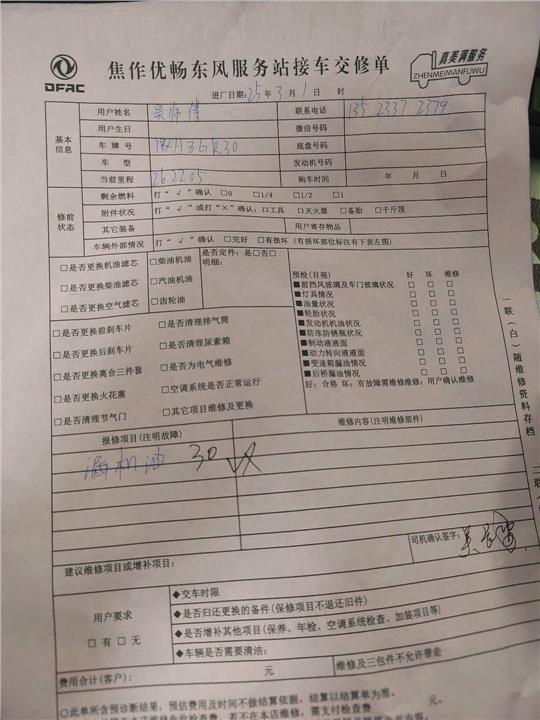 DFAC
焦作优畅东风服务站接车交修单
真美满服务
ZHENMEIMANFUWU
进厂日期:25年3月1日 时
基本信息
用户姓名 吴师傅 联系电话 135 2337 2379
用户生日 微信号码
车牌号 底盘号码
车型 发动机号码
当前里程 262205 购车时间 年 月 日
修前状态
剩余燃料 打“√”确认 □0 □1/4 □1/2 □1
附件状况 打“√”或打“×”确认:□工具 □灭火器 □备胎 □千斤顶
其它装备 用户寄存物品
车辆外部情况 打“√”确认 □完好 □有损坏(有损坏部位标注有下表左图)
□是否更换机油滤芯 □柴油机油 是否定件:是□否□
明细:
□是否更换柴油滤芯 □汽油机油
□是否更换空气滤芯 □齿轮油
□是否更换前刹车片 □是否清理排气筒
□是否更换后刹车片 □是否清理尿素箱
□是否更换离合三件套 □是否为电气维修
□是否更换火花塞 □空调系统是否正常运行
□是否清理节气门 □其它项目维修及更换
预检(目视) 好 坏 维修
■前挡风玻璃及车门玻璃状况 □ □ □
■灯具情况 □ □ □
■油量状况 □ □ □
■轮胎状况 □ □ □
■发动机机油状况 □ □ □
■防冻防锈瓶状况 □ □ □
■制动液液面 □ □ □
■动力转向液液面 □ □ □
■变速箱漏油情况 □ □ □
■后桥漏油情况 □ □ □
好:合格 坏:有故障需维修维修:用户确认维修
一联(白)随维修资料存档
报修项目(注明故障) 维修内容(注明维修部件)
漏机油 30
司机确认签字:
建议维修项目或增补项目:
用户要求
□有 □无
◆交车时限
◆是否归还更换的备件(保修项目不退还旧件)
◆是否增补其他项目(保养、年检、空调系统检查、加装项目等)
◆车辆是否需要清洁:
费用合计(客户): 元 维修及三包件不允许带走
○此单所含预诊断结果,预估费用及时间不做结算依据,结算以结算单为准。
元。